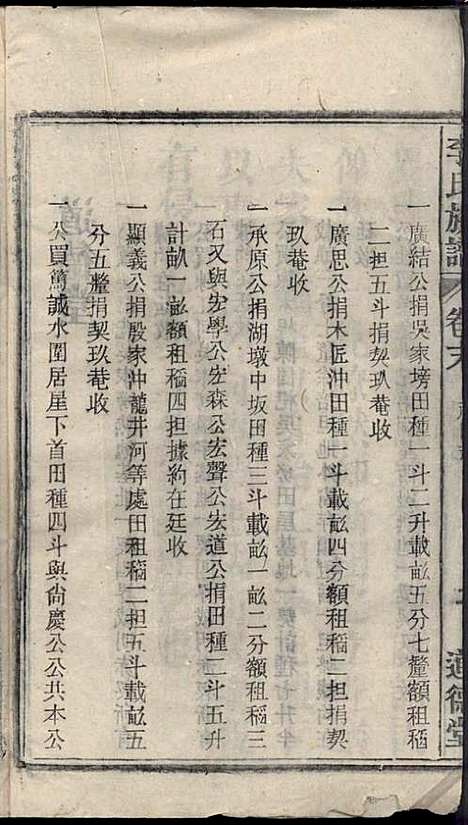 李氏族譜 卷末 道德堂
一廣結公捐吳家塝田種一斗二升載畝五分七釐額租稻
二担五斗捐契玖菴收
一廣思公捐木匠沖田種一斗載畝四分額租稻二担捐契
玖菴收
一承原公捐湖墩中坂田種三斗載畝一畝二分額租稻三
石又與宏學公宏森公宏聲公宏道公捐田種二斗五升
計畝一畝額租稻四担據約在廷收
一顯義公捐殷家沖龍井河等處田租稻二担五斗載畝五
分五釐捐契玖菴收
一公買篤誠水圍居屋下首田種四斗與尙慶公公共本公